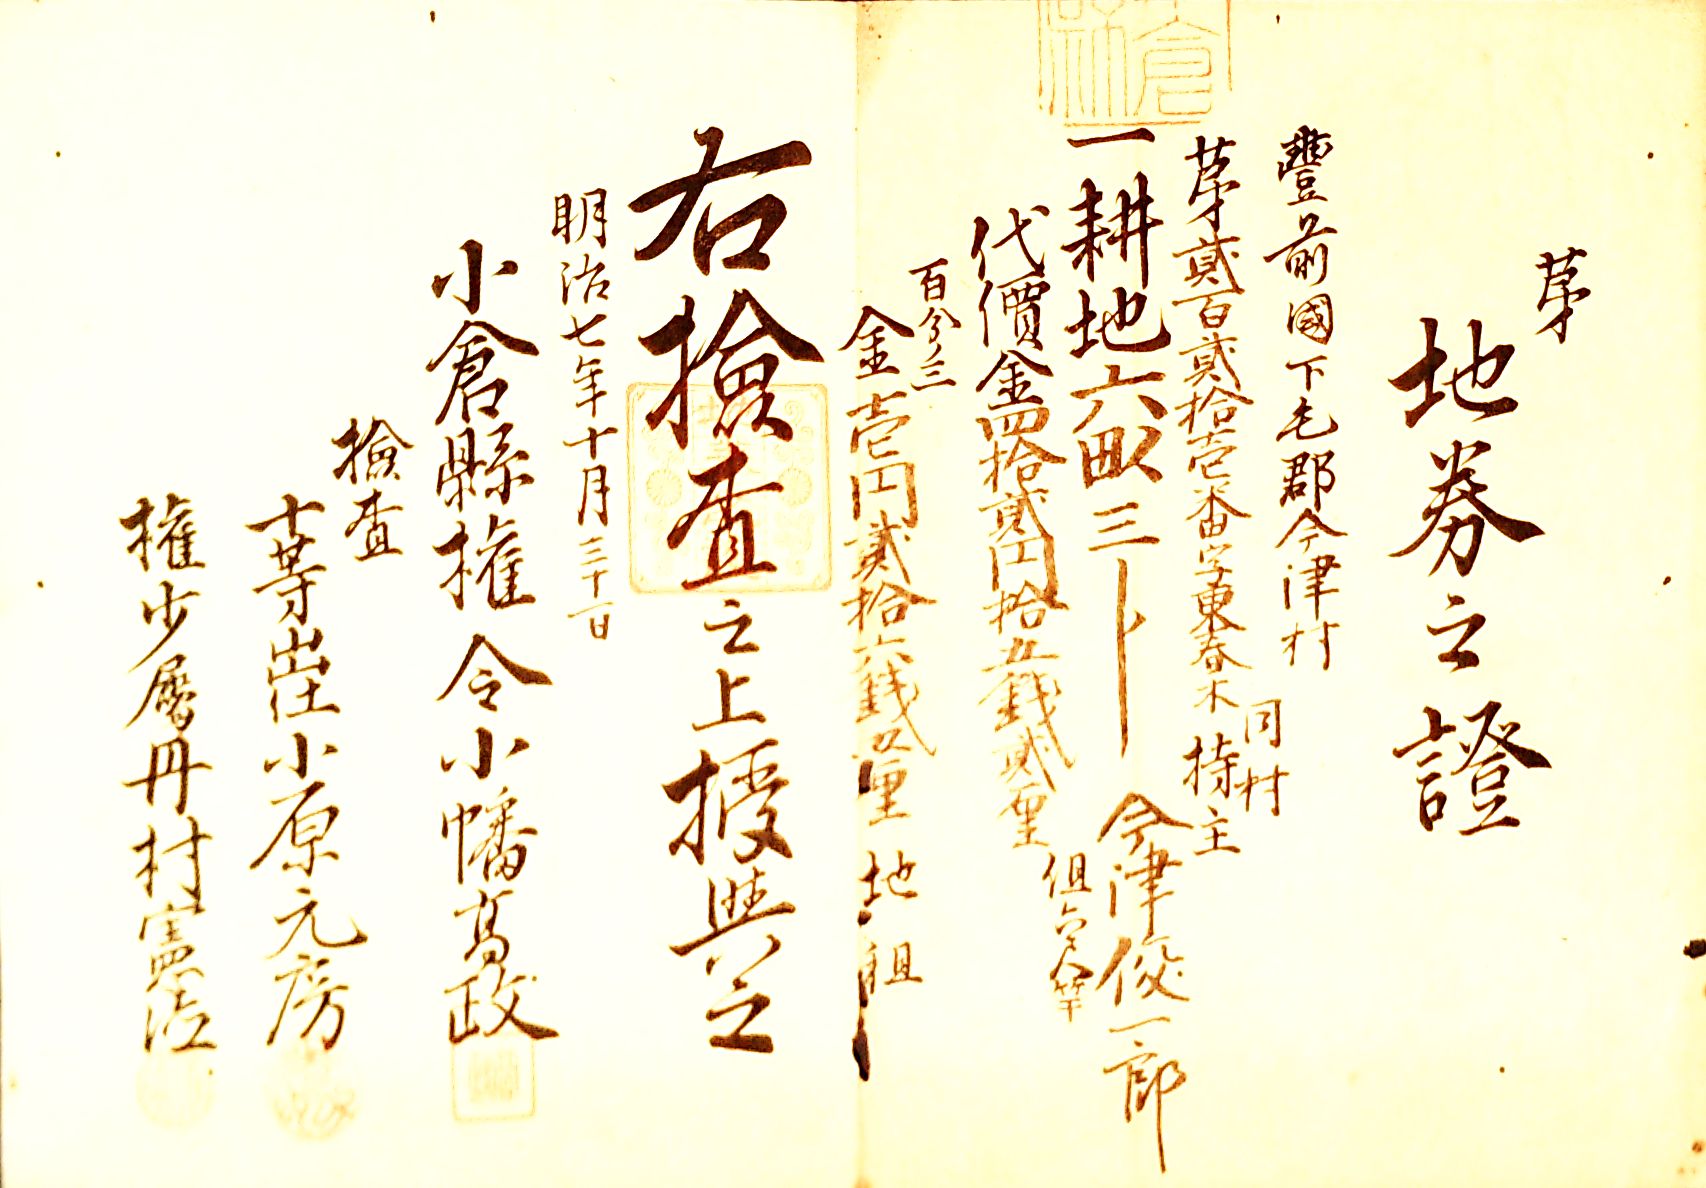 第
地券之證
豐前國下毛郡今津村
第貳百貳拾壱番字東春木
同村
持主
一耕地六畝三卜
今津俊一郎
代價金四拾貳円拾五錢貳厘
但六尺竿
百分ノ三
金壱円貳拾六錢五厘 地租
右撿査之上授與之
明治七年十月三十一日
小倉縣權令小幡高政
撿査
十等出仕小原元房
權少属丹村憲治